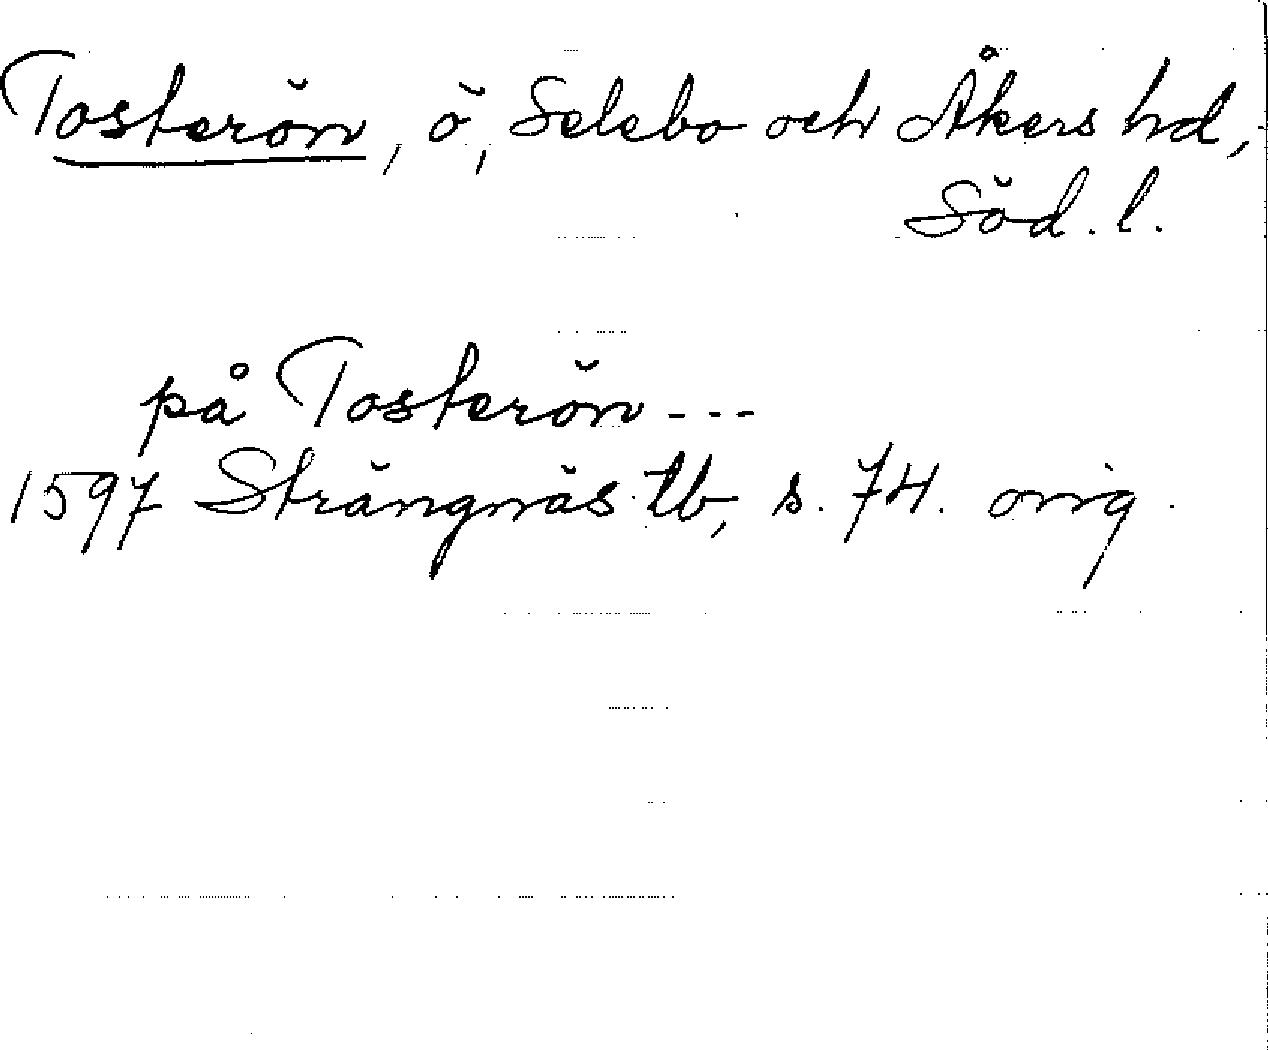 Tosterön, ö, Selebo och Åkers hd,
Söd. l.
på Tosterön ---
1597 Strängnäs tb, s. 74. orig.